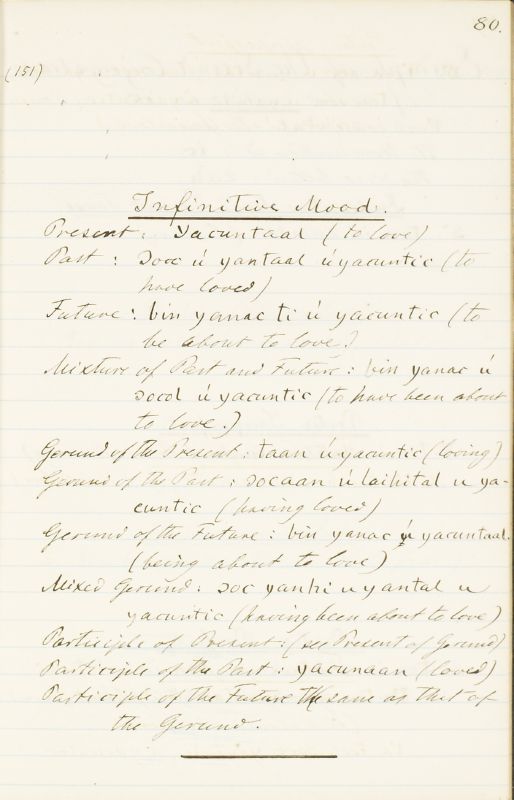 80.
(151)
Infinitive Mood.
Present: Yacuntaal (to love)
Past: ɔoc ú yantaal úyacuntic (to
have loved)
Future: bin yanac ti ú yacuntic (to
be about to love.)
Mixture of Past and Future: bin yanac ú
ɔocol úyacuntic (to have been about
to love.)
Gerund of the Present: taan úyacuntic (loving)
Gerund of the Past: ɔocaan ú laihital u ya-
cuntic (having loved)
Gerund of the Future: bin yanac ú yacuntaal.
(being about to love)
Mixed Gerund: ɔoc yanhi u yantal u
yacuntic (having been about to love)
Participle of Present: (see Present of Gerund)
Participle of the Past: yacunaan (loved)
Participle of the Future the same as that of
the Gerund.